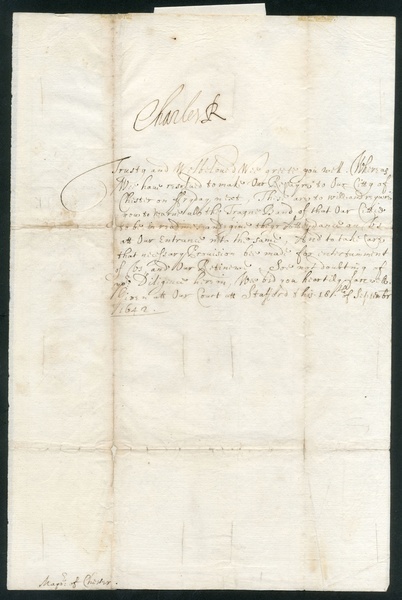 Charles R
Trusty and Welbeloved Wee greete you well. Whereas
Wee have resolved to make Our Progresse to Our Citty of
Chester on ffryday next, These are to will and require
you to warne the Trayne Band of that Our Citty
to be in readines to give their Attendance
att Our Entrance into the same, And to take care
that necessary Provision bee made for entertainment
of Us and Our Retinewe. Soe not doubting of
your Diligence herein, Wee bid you heartily farewell.
Given att Our Court att Stafford this 18th of September
1642.
Mayor of Chester.